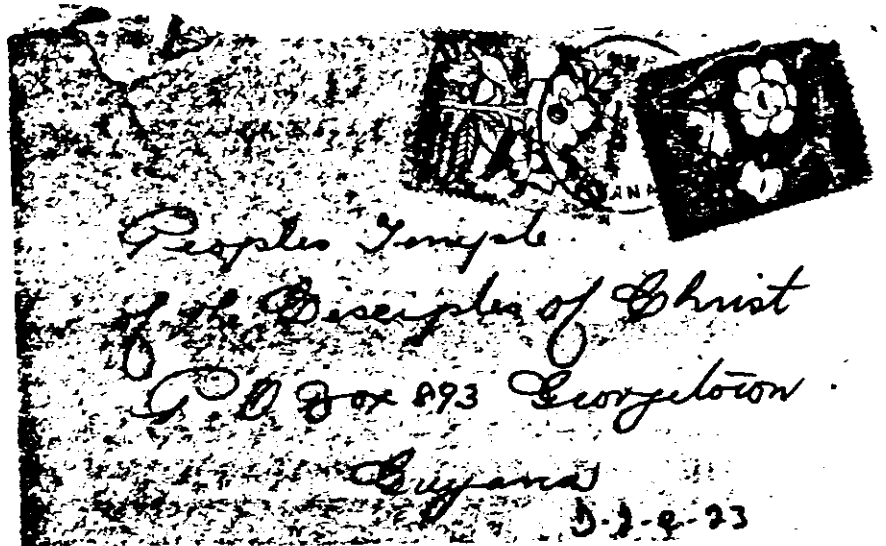 Peoples Temple
of the Disciples of Christ
P.O Box 893 Georgetown
Guyana